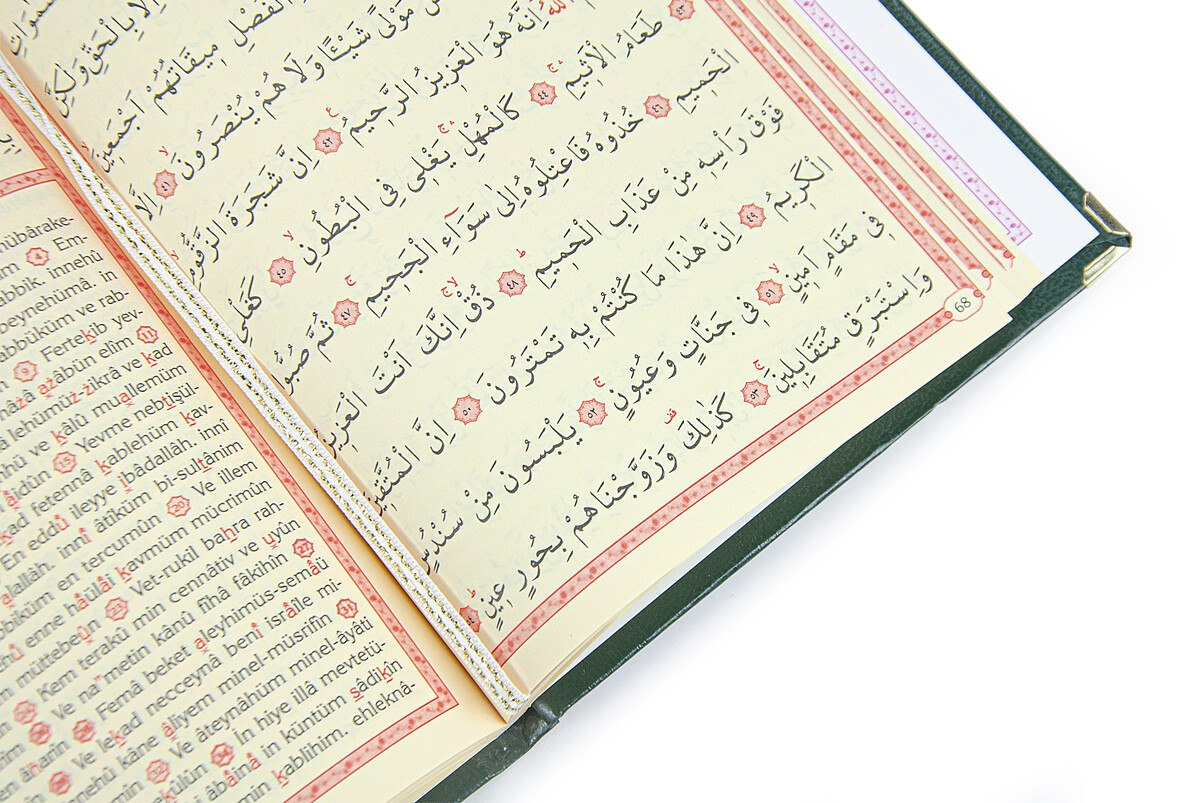 اِلَّا بِالْحَقِّ وَلٰكِنَّ
الْفَصْلِ مِيقَاتُهُمْ اَجْمَعِينَ
مَوْلًى شَيْـًٔا وَلَا هُمْ يُنْصَرُونَ ٤١ اِلَّا
اللّٰهُ اِنَّهُ هُوَ الْعَزِيزُ الرَّحِيمُ ٤٢ اِنَّ شَجَرَةَ الزَّقُّومِ
٤٣ طَعَامُ الْاَثِيمِ ٤٤ كَالْمُهْلِ يَغْلِى فِى الْبُطُونِ ٤٥ كَغَلْىِ
الْحَمِيمِ ٤٦ خُذُوهُ فَاعْتِلُوهُ اِلٰى سَوَٓاءِ الْجَحِيمِ ٤٧ ثُمَّ صُبُّوا
فَوْقَ رَأْسِهِ مِنْ عَذَابِ الْحَمِيمِ ٤٨ ذُقْ اِنَّكَ اَنْتَ الْعَزِيزُ
الْكَرِيمُ ٤٩ اِنَّ هٰذَا مَا كُنْتُمْ بِهِ تَمْتَرُونَ ٥٠ اِنَّ الْمُتَّقِينَ
فِى مَقَامٍ اَمِينٍ ٥١ فِى جَنَّاتٍ وَعُيُونٍ ٥٢ يَلْبَسُونَ مِنْ سُنْدُسٍ
وَاِسْتَبْرَقٍ مُتَقَابِلِينَ ٥٣ كَذٰلِكَ وَزَوَّجْنَاهُمْ بِحُورٍ عِينٍ
68
4 Em-
innehû
beynehümâ. in
rab-
9 Fertekib yev-
azâbün elîm 11
lehümüz-zikrâ ve kad
ve kâlû muallemüm
15 Yevme nebtişül-
kad fetennâ kablehüm kav-
En eddû ileyye ibâdallâh. innî
alallâh. innî âtîküm bi-sultânim
en tercumûn 20 Ve illem
enne hâülâi kavmüm mücrimûn
müttebeûn 23 Vet-rukil bahra rah-
Kem terakû min cennâtiv ve uyûn
Ve na'metin kânû fîhâ fâkihîn 27
Femâ beket aleyhimüs-semâü
Ve lekad necceynâ benî isrâîle mi-
kâne âliyem minel-müsrifîn 31
Ve âteynâhüm minel-âyâti
34 İn hiye illâ mevtetü-
in küntüm sâdikîn
min kablihim. ehleknâ-